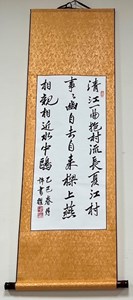 清江一曲抱村流長夏江村
事々幽自去自来樑上燕
相親相近水中鷗
乙巳春月